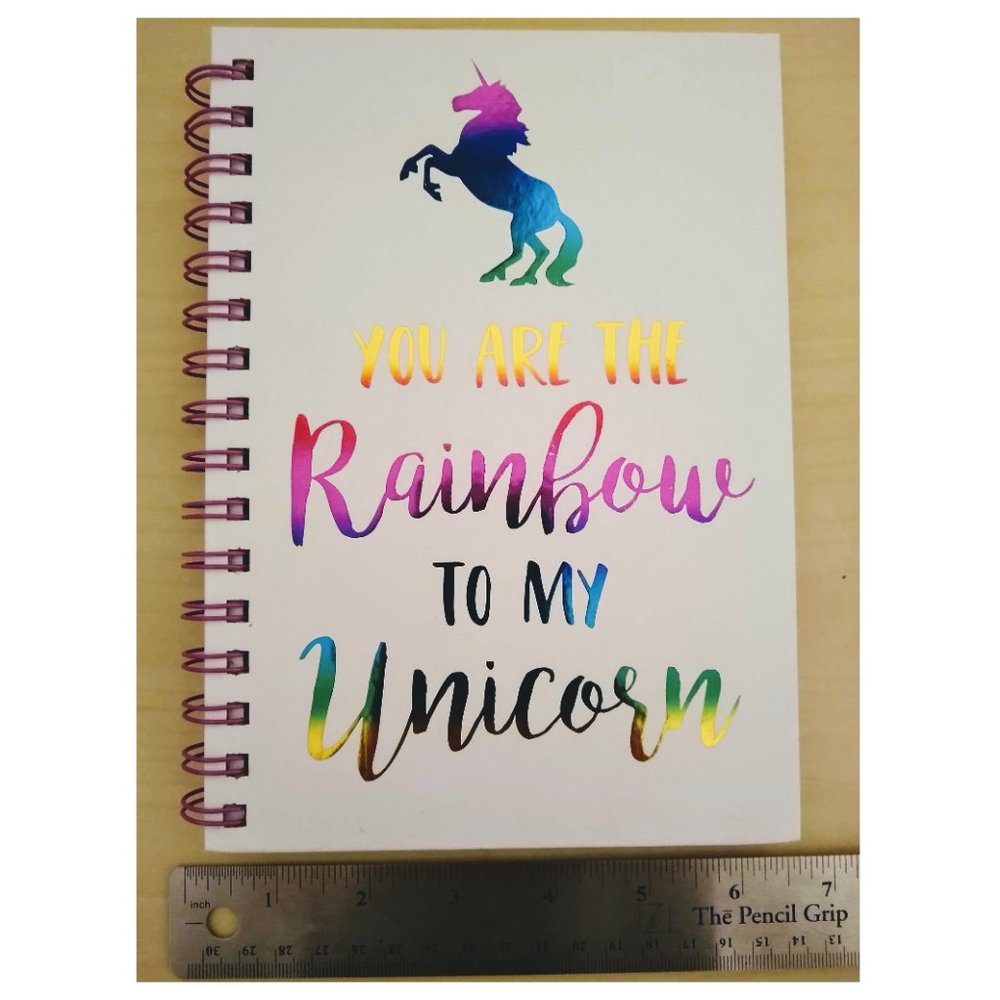 YOU ARE THE
Rainbow
TO MY
Unicorn
1 2 3 4 5 6 7
inch
The Pencil Grip
30 29 28 27 26 25 24 23 22 21 20 19 18 17 16 15 14 13